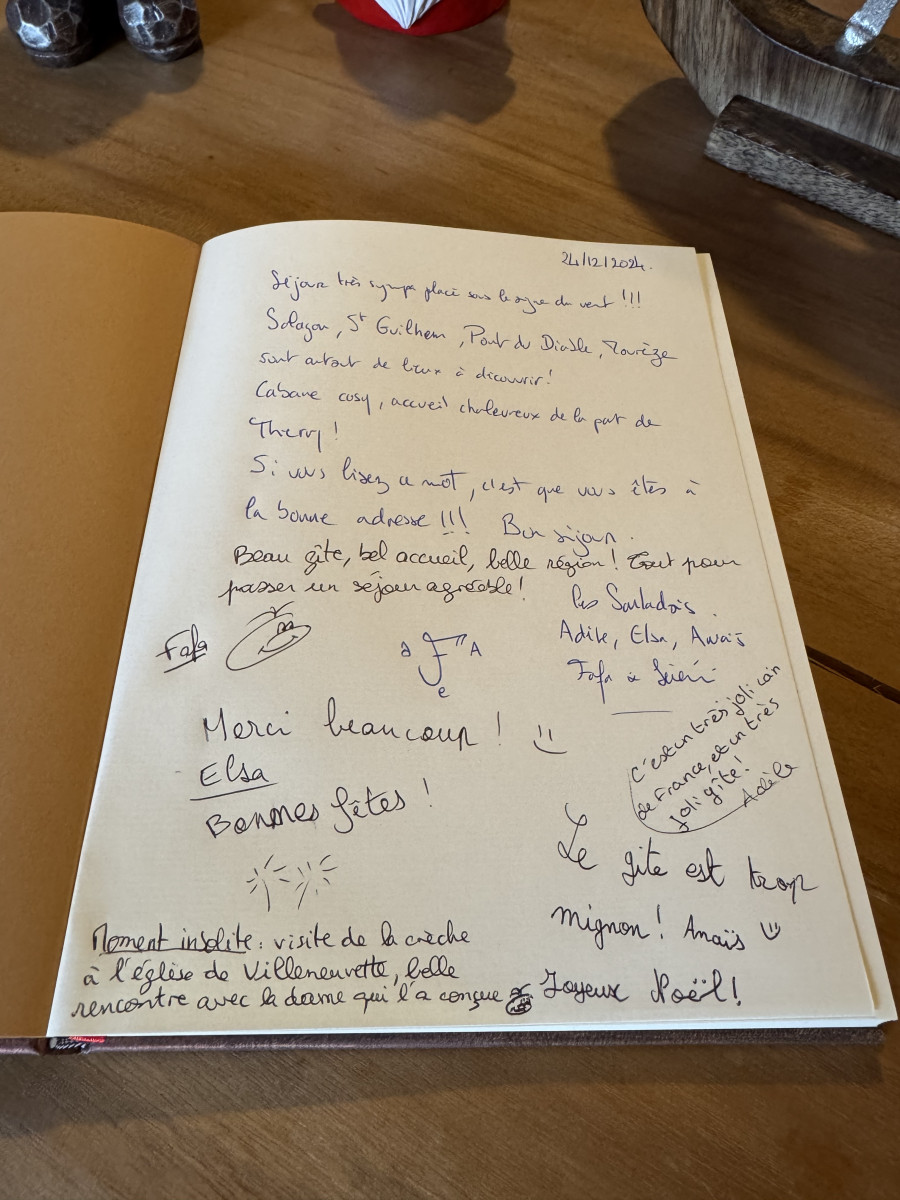 24/12/2024.
Séjour très sympa placé sous le signe du vent !!!
Salagou, St Guilhem, Pont du Diable, Mourèze
sont autant de lieux à découvrir !
Cabane cosy, accueil chaleureux de la part de
Thierry !
Si vous lisez ce mot, c'est que vous êtes à
la bonne adresse !!! Bon séjour.
Beau gîte, bel accueil, belle région ! Tout pour
passer un séjour agréable !
Les Sarladais
Adèle, Elsa, Anaïs
Fafa &
Fafa
a F A
e
Merci beaucoup !
Elsa
Bonnes fêtes !
C'est un très joli coin
de France, et un très
joli gîte !
Adèle
Le gîte est trop
mignon ! Anaïs
Moment insolite : visite de la crèche
à l'église de Villeneuvette, belle
rencontre avec la dame qui l'a conçue
Joyeux Noël !